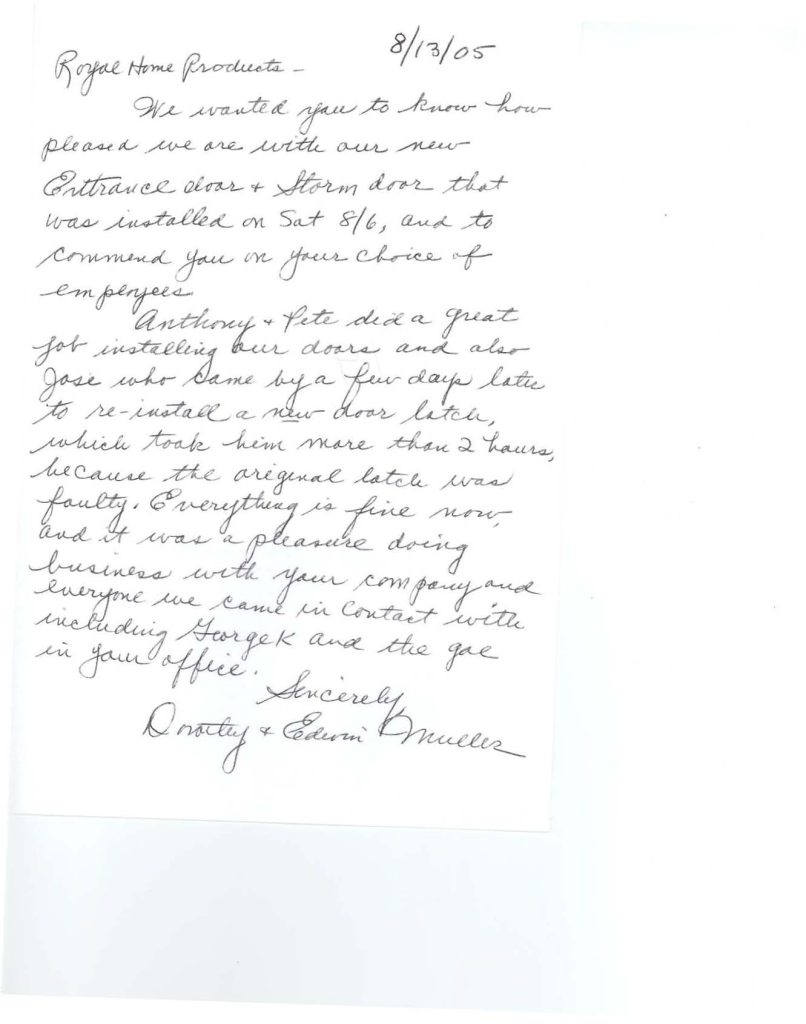 8/13/05
Royal Home Products –
We wanted you to know how
pleased we are with our new
Entrance door + Storm door that
was installed on Sat 8/6, and to
commend you on your choice of
employees.
Anthony + Pete did a great
job installing our doors and also
Jose who came by a few days later
to re-install a new door latch,
which took him more than 2 hours,
because the original latch was
faulty. Everything is fine now,
and it was a pleasure doing
business with your company and
everyone we came in contact with
including George K and the gal
in your office.
Sincerely,
Dorothy + Edwin Muller